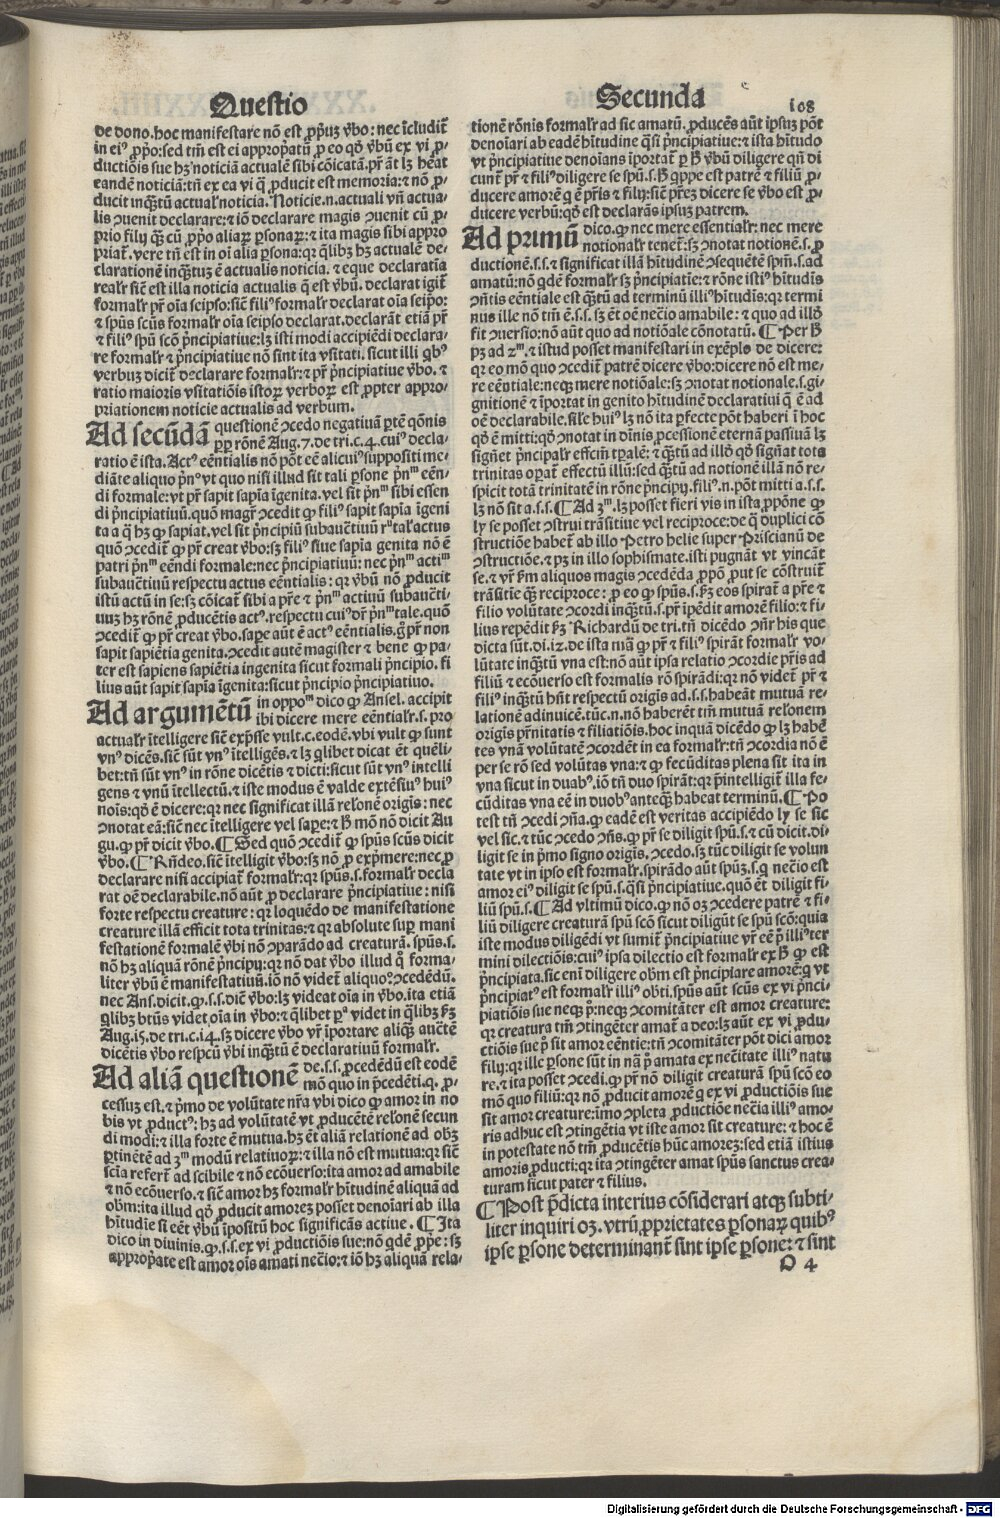 Questio
Secunda
108
de dono. hoc manifestare nō est ꝓpriū v̄bo: nec īcludit̄
in ei⁹ ꝓpō: sed tm̄ est ei appropatū ꝓ eo qđ v̄bū ex vi ꝓ-
ductiōis sue hꝫ noticiā actualē sibi cōicatā. pr̄ āt lꝫ heat
eandē noticiā: tn̄ ex ea vi q̄ ꝓducit est memoria: ⁊ nō ꝓ-
ducit inqʒtū actual̓ noticia. Noticie.n. actuali vn̄ actua-
lis ꝯuenit declarare: ⁊ iō declarare magis ꝯuenit cū ꝓ-
prio filij qʒ cū ꝓpō aliaꝝ ꝑsonaꝝ: ⁊ ita magis sibi appro
priat̄. vere tn̄ est in oī alia ꝑsona: qꝛ q̄libꝫ hꝫ actualē de-
clarationē inqʒtuꝫ ē actualis noticia. ⁊ eque declaratīa
realr̄ sic̄ est illa noticia actualis q̄ est v̄bū. declarat igit̄
formalr̄ pr̄ oīa seipso: sic̄ fili⁹ formalr̄ declarat oīa seip̄o:
⁊ spūs scūs formalr̄ oīa seipso declarat. declarāt etiā pr̄
⁊ fili⁹ spū scō p̄ncipiatiue: lꝫ isti modi accipiēdi declara-
re formalr̄ ⁊ p̄ncipiatiue nō sint ita vsitati. sicut illi qb⁹
verbuꝫ dicit̄ declarare formalr̄: ⁊ pr̄ p̄ncipiatiue v̄bo. ⁊
ratio maioris vsitatiōis istoꝝ verboꝝ est ꝓpter appro-
priationem noticie actualis ad verbum.
Ad secūdā questionē ꝯcedo negatiuā ꝑtē qōnis
ꝓpꝛ rōnē Aug. 7. de tri. c. 4. cui⁹ decla-
ratio ē ista. Act⁹ eēntialis nō pōt eē alicui⁹ suppositi me-
diāte aliquo p̄n° vt quo nisi illud sit tali ꝑsone p̄nᵐ eēn-
di formale: vt pr̄ sapit sapīa īgenita. vel sit p̄nᵐ sibi essen
di p̄ncipiatiuū. quō magr̄ ꝯcedit ꝙ fili⁹ sapit sapīa īgeni
ta a q̄ hꝫ ꝙ sapiat. vel sit p̄ncipiū subauctiuū rᵘ tal̓ actus
quō ꝯcedit̄ ꝙ pr̄ creat v̄bo: sꝫ fili⁹ siue sapīa genita nō ē
patri p̄nᵐ eēndi formale: nec p̄ncipiatiuū: nec p̄nᵐ actiᵐ
subauctiuū respectu actus eēntialis: qꝛ v̄bū nō ꝓducit
istū actū in se: sꝫ cōicat̄ sibi a pr̄e ⁊ p̄nᵐ actiuū subaucti-
uuꝫ hꝫ rōnē ꝓducētis act⁹. respectu cui⁹ dr̄ p̄nᵐ tale. quō
ꝯcedit̄ ꝙ pr̄ creat v̄bo. sape aūt ē act⁹ eēntialis. g̊ pr̄ non
sapit sapiētia genita. ꝯcedit autē magister ⁊ bene ꝙ pa-
ter est sapiens sapiētia ingenita sicut formali p̄ncipio. fi
lius aūt sapit sapīa īgenita: sicut p̄ncipio p̄ncipiatiuo.
Ad argumētū in oppoᵐ dico ꝙ Ansel. accipit
ibi dicere mere eēntialr̄. s. pro
actualr̄ ītelligere sic̄ exp̄sse vult. c. eodē. vbi vult ꝙ sunt
vn⁹ dicēs. sic̄ sūt vn⁹ ītelligēs. ⁊ lꝫ q̄libet dicat ēt quēli-
bet: tn̄ sūt vn⁹ in rōne dicētis ⁊ dicti: sicut sūt vn⁹ intelli
gens ⁊ vnū ītellectū. ⁊ iste modus ē valde extēsiu⁹ hui⁹
noīs: qđ ē dicere: qꝛ nec significat illā relōnē origīs: nec
ꝯnotat eā: sic̄ nec ītelligere vel sape: ⁊ h̄ mō nō dicit Au
gu. ꝙ pr̄ dicit v̄bo. ¶ Sed quō ꝯcedit̄ ꝙ spūs scūs dicit
v̄bo. ¶ Rn̄deo. sic̄ ītelligit v̄bo: sꝫ nō ꝓ exp̄mere: nec ꝓ
declarare nisi accipiat̄ formalr̄: qꝛ spūs. s. formalr̄ decla
rat oē declarabile. nō aūt ꝓ declarare p̄ncipiatiue: nisi
forte respectu creature: qꝛ loquēdo de manifestatione
creature illā efficit tota trinitas: ⁊ qꝛ absolute suꝑ mani
festationē formalē v̄bi nō ꝯparādo ad creaturā. spūs. s.
nō hꝫ aliquā rōnē p̄ncipij: qꝛ nō dat v̄bo illud q̄ forma-
liter v̄bū ē manifestatiuū. iō nō videt̄ aliquo⁹ ꝯcedēdū.
nec Ans. dicit. ꝙ. s. s. dic̄ v̄bo: lꝫ videat oīa in v̄bo. ita etiā
q̄libꝫ btūs videt oīa in v̄bo: ⁊ q̄libet pᵃ videt in q̄libꝫ km̄
Aug. 15. de tri. c. 14. sꝫ dicere v̄bo vr̄ īportare aliqʒ auctē
dicētis v̄bo respcū v̄bi inqʒtū ē declaratiuū formalr̄.
Ad aliā questionē de. s. s. ꝓcedēdū est eodē
mō quo in p̄cedēti. q. ꝓ-
cessuꝫ est. ⁊ p̄mo de volūtate nr̄a vbi dico ꝙ amor in no
bis vt ꝓduct⁹: hꝫ ad volūtatē vt ꝓducētē relōnē secun
di modi: ⁊ illa forte ē mutua. hꝫ ēt aliā relationē ad obꝫ
ꝑtinētē ad 3ᵐ modū relatiuoꝝ: ⁊ illa nō est mutua: qꝛ sic̄
scīa refert̄ ad scibile ⁊ nō ecōuerso: ita amor ad amabile
⁊ nō ecōuerso. ⁊ sic̄ amor hꝫ formalr̄ hitudinē aliquā ad
obm: ita illud qđ ꝓducit amoreꝫ posset denoiari ab illa
hitudīe si eēt v̄bū īpositū hoc significās actiue. ¶ Ita
dico in diuinis. ꝙ. s. s. ex vi ꝓductiōis sue: nō qdē ꝓpe: sꝫ
appropate est amor oīs amati necīo: ⁊ iō hꝫ aliquā rela-
tionē rōnis formalr̄ ad sic amatū. ꝓducēs aūt ip̄suꝫ pōt
denoīari ab eadē hitudine q̄si p̄ncipiatiue: ⁊ ista hitudo
vt p̄ncipiatiue denoīans īportat̄ ꝑ h̄ v̄bū diligere qn̄ di
cunt̄ pr̄ ⁊ fili⁹ diligere se spū. s. h̄ q̄ppe est patrē ⁊ filiū ꝓ-
ducere amorē q̄ ē pr̄is ⁊ filij: sic̄ pr̄eꝫ dicere se v̄bo est ꝓ-
ducere verbū: qđ est declarās ipsuꝫ patrem.
Ad primū dico. ꝙ nec mere essentialr̄: nec mere
notionalr̄ tenet̄: sꝫ ꝯnotat notionē. s. ꝓ
ductionē. s. s. ⁊ significat illā hitudinē ꝯsequētē spm̄. s. ad
amatū: nō qdē formalr̄ sꝫ p̄ncipiatie: ⁊ rōne isti⁹ hitudīs
ꝯn̄tis eēntiale est qʒtū ad terminū illi⁹ hitudīs: qꝛ termi
nus ille nō tm̄ ē. s. s. sꝫ ēt oē necio amabile: ⁊ quo ad illđ
fit ꝯuersio: nō aūt quo ad notiōale cōnotatū. ¶ Per h̄
pꝫ ad 2ᵐ. ⁊ istud posset manifestari in exēplo de dicere:
qꝛ eo mō quo ꝯcedit̄ patrē dicere v̄bo: dicere nō est me-
re eēntiale: neqʒ mere notiōale: sꝫ ꝯnotat notionale. s. gi-
gnitionē ⁊ īportat in genito hitudinē declaratiui q̄ ē ad
oē declarabile. sil̓e hui⁹ lꝫ nō ita ꝑfecte pōt haberi ī hoc
qđ ē mitti: qđ ꝯnotat in diuīs ꝓcessionē eternā passiuā lꝫ
signēt p̄ncipalr̄ effcm̄ tꝑalē: ⁊ qʒtū ad illđ qđ signat tota
trinitas oꝑat̄ effectū illū: sed qʒtū ad notionē illā nō re-
spicit totā trinitatē in rōne p̄ncipij. fili⁹. n. pōt mitti a. s. s.
lꝫ nō sit a. s. s. ¶ Ad 3ᵐ. lꝫ posset fieri vis in ista ꝓpōne ꝙ
ly se posset ꝯstrui trāsitiue vel reciproce: de q̄ duplici cō
structiōe habet̄ ab illo Petro helie super Priscianū de
ꝯstructiōe. ⁊ pꝫ in illo sophismate. isti pugnāt vt vincāt
se. ⁊ vr̄ km̄ aliquos magis ꝯcedēda ꝓpō ꝓut se cōstruit̄
trāsitie qʒ reciproce: ꝓ eo ꝙ spūs. s. km̄ eos spirat̄ a pr̄e ⁊
filio volūtate ꝯcordi inqʒtū. s. pr̄ īpēdit amorē filio: ⁊ fi-
lius repēdit km̄ Richardū de tri. tn̄ dicēdo ꝯn̄r his que
dicta sūt. di. 12. de ista mā ꝙ pr̄ ⁊ fili⁹ spirāt formalr̄ vo-
lūtate inqʒtū vna est: nō aūt ipsa relatio ꝯcordie pr̄is ad
filiū ⁊ ecōuerso est formalis rō spirādi: qꝛ nō videt̄ pr̄ ⁊
fili⁹ inqʒtū hn̄t respectū origīs ad. s. s. habeāt mutuā re-
lationē adinuicē. tūc. n. nō haberēt tm̄ mutuā relōnem
origīs pr̄nitatis ⁊ filiatiōis. hoc inquā dicēdo ꝙ lꝫ habē
tes vnā volūtatē ꝯcordēt in ea formalr̄: tn̄ ꝯcordia nō ē
per se rō sed volūtas vna: ⁊ ꝙ fecūditas plena sit ita in
vna sicut in duab⁹. iō tn̄ duo spirāt: qꝛ p̄intelligit̄ illa fe-
cūditas vna eē in duob⁹ anteqʒ habeat terminū. ¶ Po
test tn̄ ꝯcedi ꝯn̄a. ꝙ eadē est veritas accipiēdo ly se sic
vel sic. ⁊ tūc ꝯcedo ꝯn̄s. ꝙ pr̄ se diligit spū. s. ⁊ cū dicit. di-
ligit se in p̄mo signo origīs. ꝯcedo. sꝫ tūc diligit se volun
tate vt in ipso est formalr̄. spirādo aūt spūꝫ. s. q̄ necīo est
amor ei⁹ diligit se spū. s. q̄si p̄ncipiatiue. quō ēt diligit fi-
liū spū. s. ¶ Ad vltimū dico. ꝙ nō oꝫ ꝯcedere patrē ⁊ fi-
liū diligere creaturā spū scō sicut diligūt se spū scō: quia
iste modus diligēdi vt sumit̄ p̄ncipiatiue vr̄ eē p̄ illi⁹ ter
mini dilectiōis: cui⁹ ipsa dilectio est formalr̄ ex h̄ ꝙ est
p̄ncipiata. sic enī diligere obm est p̄ncipiare amorē: q̄ vt
p̄ncipiat⁹ est formalr̄ illi⁹ obti. spūs aūt scūs ex vi p̄nci-
piatiōis sue neqʒ p̄: neqʒ ꝯcomitāter est amor creature:
qꝛ creatura tm̄ ꝯtingēter amat̄ a deo: lꝫ aūt ex vi ꝓdu-
ctiōis sue p̄ sit amor eēntie: tn̄ ꝯcomitāter pōt dici amor
filij: qꝛ ille ꝑsone sūt in nā p̄ amata ex necītate illi⁹ natu
re. ⁊ ita posset ꝯcedi. ꝙ pr̄ nō diligit creaturā spū scō eo
mō quo filiū: qꝛ nō ꝓducit amorē q̄ ex vi ꝓductiōis sue
sit amor creature: īmo ꝯpleta ꝓductiōe necīa illi⁹ amo-
ris adhuc est ꝯtingētia vt iste amor sit creature: ⁊ hoc ē
in potestate nō tm̄ ꝓducētis hūc amoreꝫ: sed etiā istius
amoris ꝓducti: qꝛ ita ꝯtingēter amat spūs sanctus crea-
turam sicut pater ⁊ filius.
¶ Post p̄dicta interius cōsiderari atqʒ subti-
liter inquiri oꝫ. vtrū ꝓprietates ꝑsonaꝝ quib⁹
ip̄se ꝑsone determinant̄ sint ip̄se ꝑsone: ⁊ sint
O 4
Digitalisierung gefördert durch die Deutsche Forschungsgemeinschaft - DFG